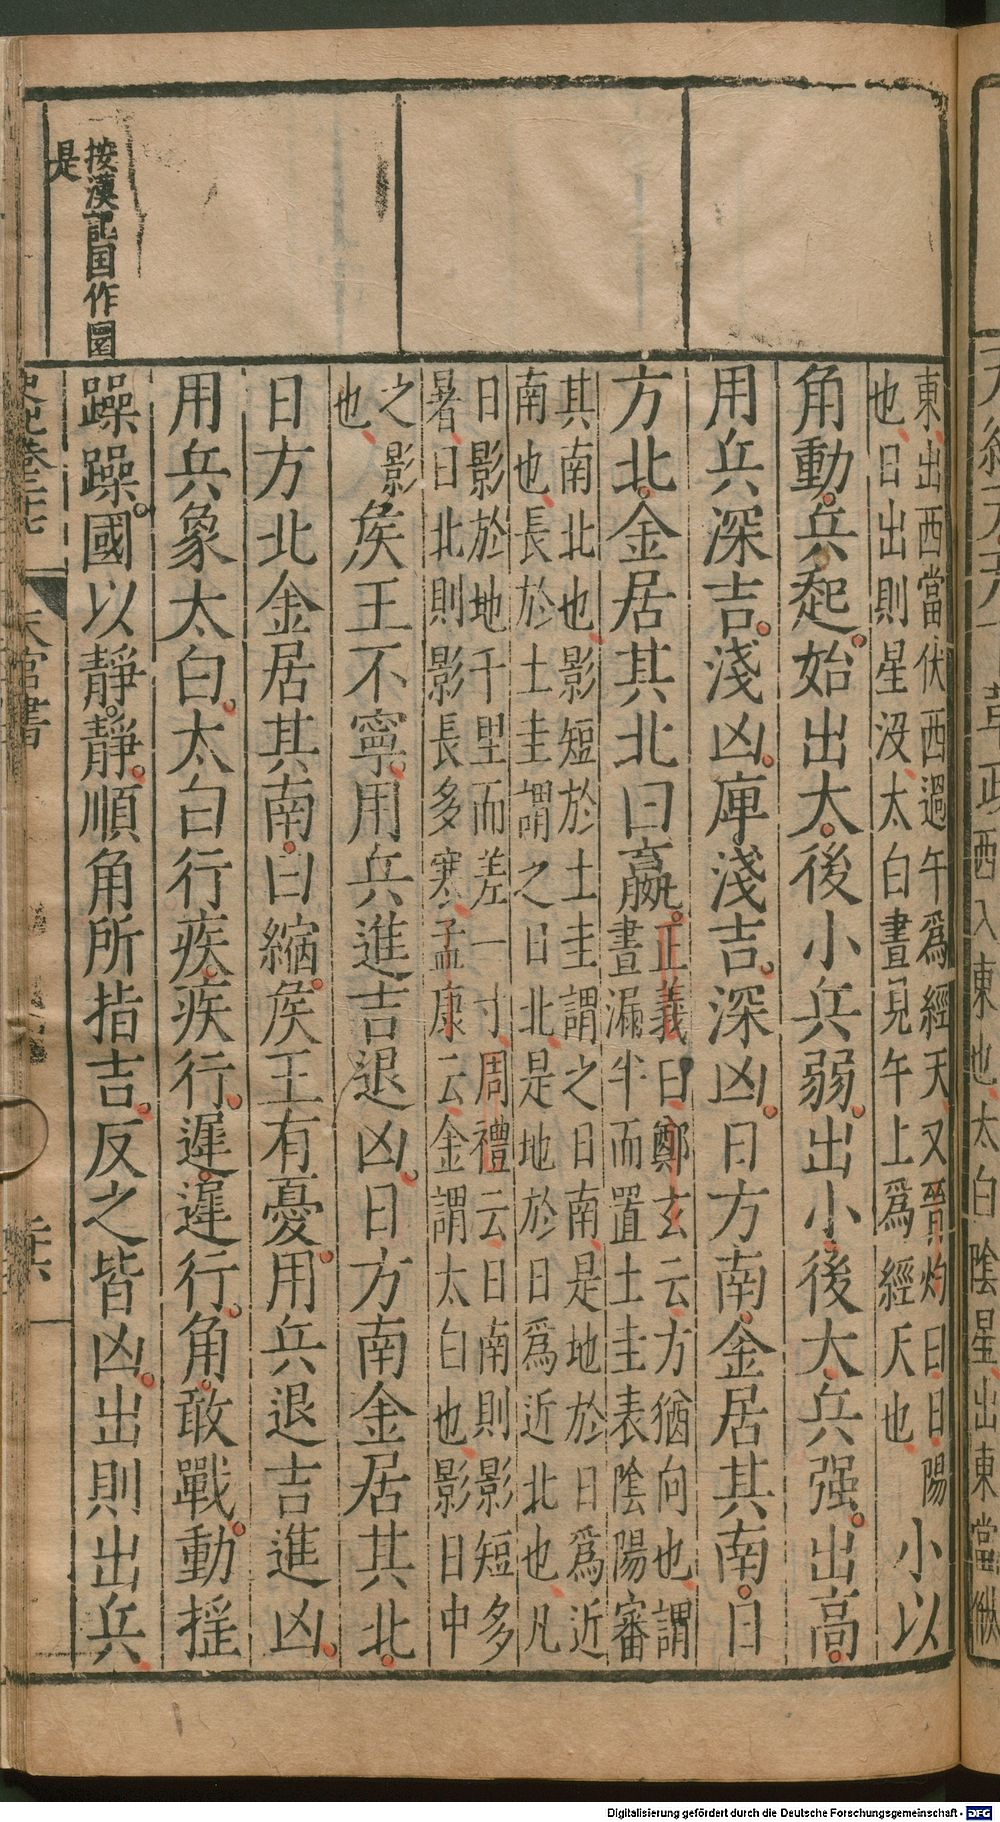 按漢記国作圍
是
東出西當伏西過午爲經天又晉灼曰日陽
也日出則星没太白晝見午上爲經天也
小以
角動兵起始出大後小兵弱出小後大兵强出高
用兵深吉淺凶庳淺吉深凶日方南金居其南日
方北金居其北曰嬴
正義曰鄭玄云方猶向也謂
晝漏半而置土圭表陰陽審
其南北也影短於土圭謂之日南是地於日爲近
南也長於土圭謂之日北是地於日爲近北也凡
日影於地千里而差一寸周禮云日南則影短多
暑日北則影長多寒孟康云金謂太白也影日中
之影
也
矦王不寧用兵進吉退凶日方南金居其北
日方北金居其南曰縮矦王有憂用兵退吉進凶
用兵象太白太白行疾疾行遲遲行角敢戰動揺
躁躁國以靜靜順角所指吉反之皆凶出則出兵
天官書
天 革政 西入東也太白陰星出東當伏
Digitalisierung gefördert durch die Deutsche Forschungsgemeinschaft - DFG